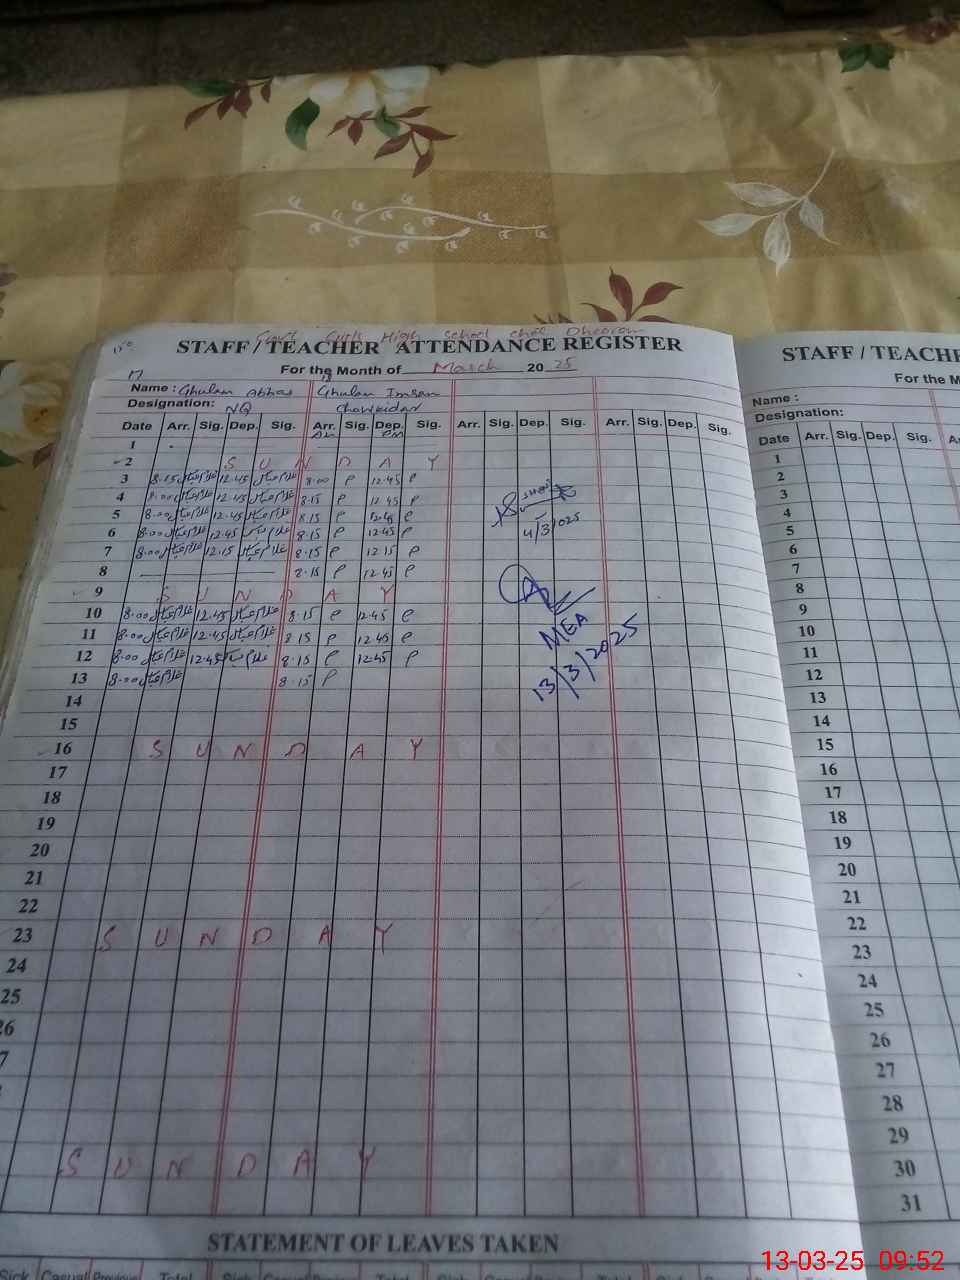 Govt Girls High School Dheeron
STAFF / TEACHER ATTENDANCE REGISTER
For the Month of March 2025
17 18
Name : Ghulam Abbas Ghulam Imran
Designation: NQ Chowkidar
Date Arr. Sig. Dep. Sig. Arr. Sig. Dep. Sig. Arr. Sig. Dep. Sig. Arr. Sig. Dep. Sig.
1
2 S U N D A Y
3 8.15 غلام عباس 12.45 غلام عباس 8.00 P 12.45 P
4 8.00 غلام عباس 12.45 غلام عباس 8.15 P 12.45 P
5 8.00 غلام عباس 12.45 غلام عباس 8.15 P 12.45 P
6 8.00 غلام عباس 12.45 غلام عباس 8.15 P 12.45 P
7 8.00 غلام عباس 12.15 غلام عباس 8.15 P 12.15 P
8 8.15 P 12.45 P
9 S U N D A Y
10 8.00 غلام عباس 12.45 غلام عباس 8.15 P 12.45 P
11 8.00 غلام عباس 12.45 غلام عباس 8.15 P 12.45 P
12 8.00 غلام عباس 12.45 غلام عباس 8.15 P 12.45 P
13 8.00 غلام عباس 8.15 P
14
15
16 S U N D A Y
17
18
19
20
21
22
23 S U N D A Y
24
25
26
7
S U N D A Y
4/3/025
MEA
13/3/2025
STATEMENT OF LEAVES TAKEN
Sick Casual Previous Total
STAFF / TEACHE
For the M
Name :
Designation:
Date Arr. Sig. Dep. Sig.
1
2
3
4
5
6
7
8
9
10
11
12
13
14
15
16
17
18
19
20
21
22
23
24
25
26
27
28
29
30
31
13-03-25 09:52